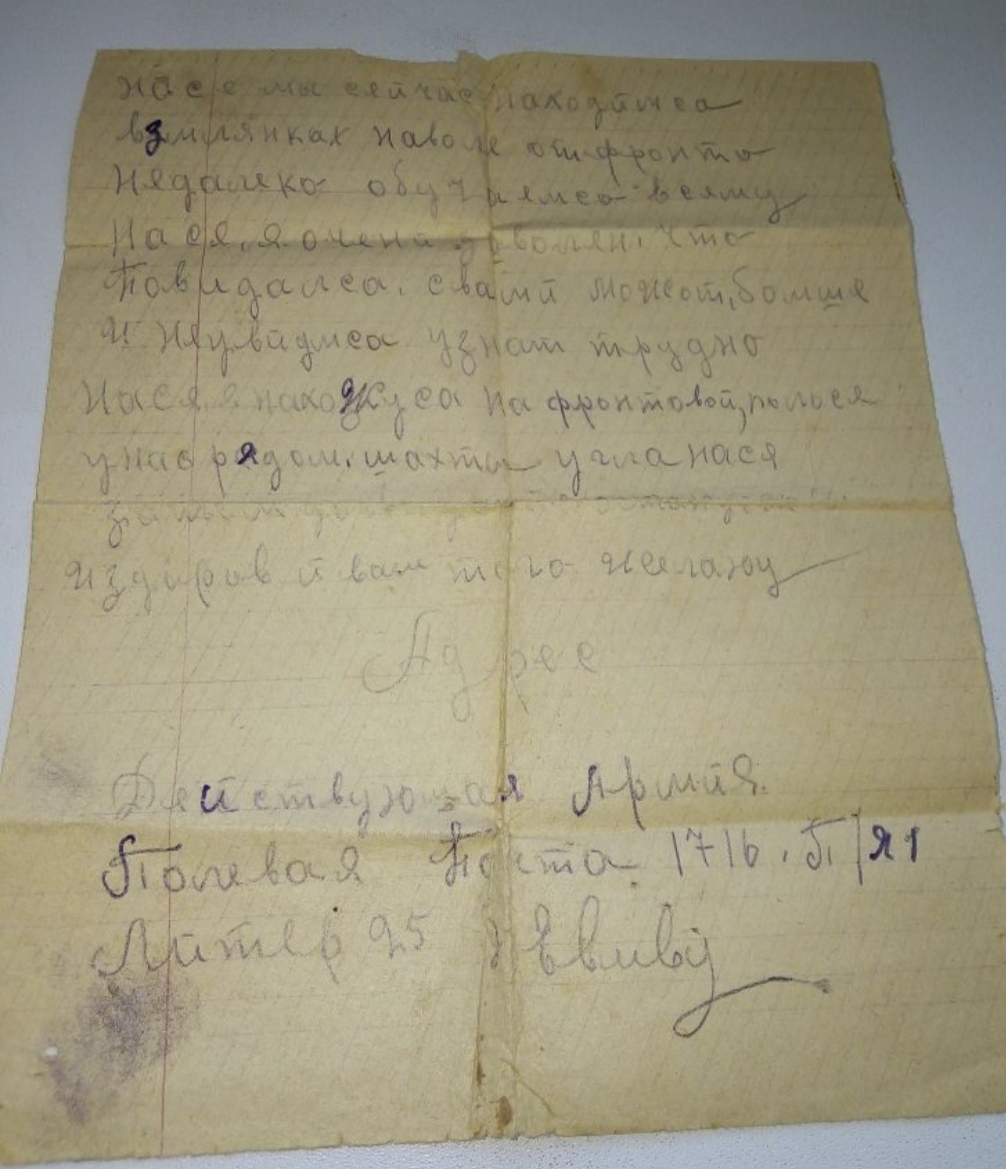 Насе мы сейчас находимса
вземлянках наволе отфронто
Нядалеко обучаямсо всяму
Нася, я очени доволян. что
Повидалса. свами можот, болшя
И Няувидмса узнат трудно
Нася я нахожуса На фронтовой, полося
унас рядом. шахты угла нася
издоров и вам того желаю
Адрес
Действующая Армия.
Полевая Почта 1716. П/я1
Литер 25